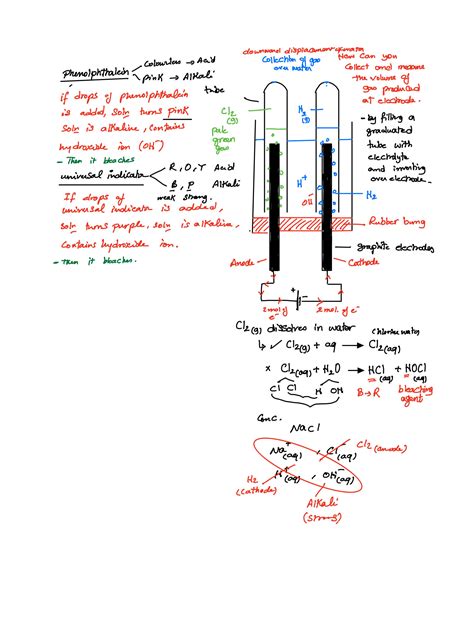 Phenolphthalein
Colourless → Acid
Pink → Alkali
if drops of phenolphthalein
is added, soln turns pink
soln is alkaline, contains
hydroxide ion (OH⁻)
- Then it bleaches
universal indicator
R, O, Y Acid
B, P Alkali
weak strong
If drops of
universal indicator is added,
soln turns purple, soln is alkaline,
contains hydroxide ion.
- Then it bleaches.
downward displacement of water
Collection of gas
over water
tube
Cl2
(g)
pale
green
gas
H2
(g)
H⁺
OH⁻
How can you
collect and measure
the volume of
gas produced
at electrode.
- by filling a
graduated
tube with
electrolyte
and inverting
over electrode.
H2
Rubber bung
graphite electrodes
Anode
Cathode
2 mol of
e⁻
2 mol. of e⁻
Cl2(g) dissolves in water
Chlorine water
↳ ✓ Cl2(g) + aq → Cl2(aq)
× Cl2(aq) + H2O → HCl (aq) + HOCl (aq)
Cl Cl H OH
B→R
bleaching
agent
Conc.
NaCl
Na⁺(aq) , Cl⁻(aq)
Cl2 (anode)
H⁺(aq) , OH⁻(aq)
H2
(cathode)
Alkali
(strong)